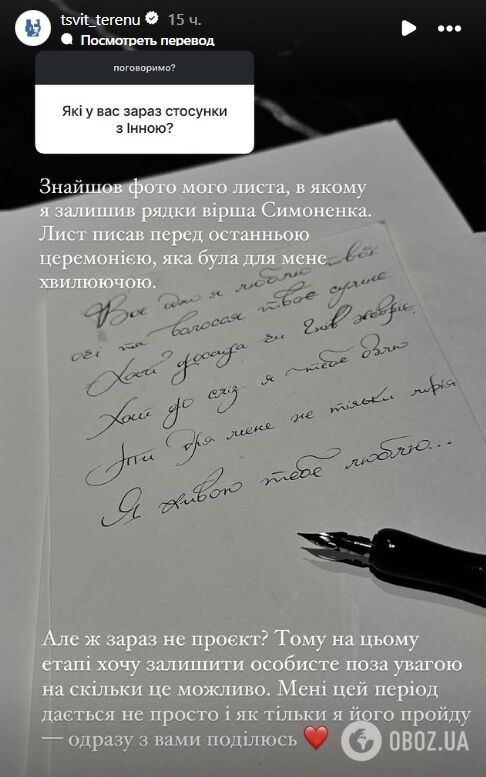 tsvit_terenu 15 ч.
Посмотреть перевод
поговоримо?
Які у вас зараз стосунки
з Інною?
Знайшов фото мого листа, в якому
я залишив рядки вірша Симоненка.
Лист писав перед останньою
церемонією, яка була для мене
хвилюючою.
Все одно я люблю твої
очі та волосся твоє сумне.
Хай досада чи гнів жевріє,
Хай до сліз я тебе
Ти для мене не тільки мрія
Я живою тебе люблю...
Але ж зараз не проєкт? Тому на цьому
етапі хочу залишити особисте поза увагою
на скільки це можливо. Мені цей період
дається не просто і як тільки я його пройду
— одразу з вами поділюсь ❤️
OBOZ.UA